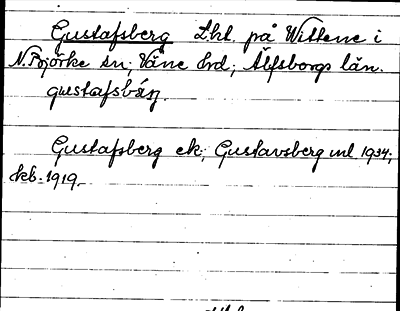 Gustafsberg Lht. på Wittene i
N. Björke sn; Väne hd; Älfsborgs län.
gustafsbärj.
Gustafsberg ek; Gustavsberg ml 1934;
kb. 1919.